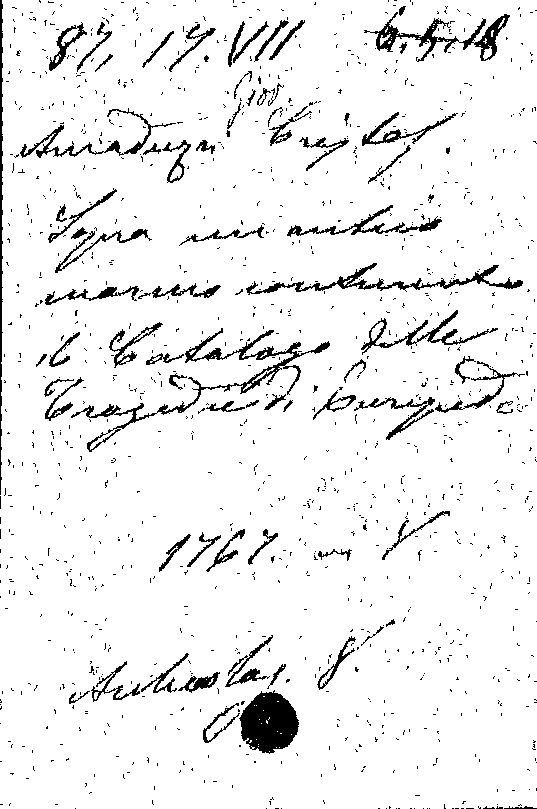 87, 17. VII 6.5.18
Giov.
Amaduzzi Cristof.
Sopra un antico
marmo contenente
il Catalogo delle
Tragedie di Euripide
1767. V.
Archaeolog. 8.